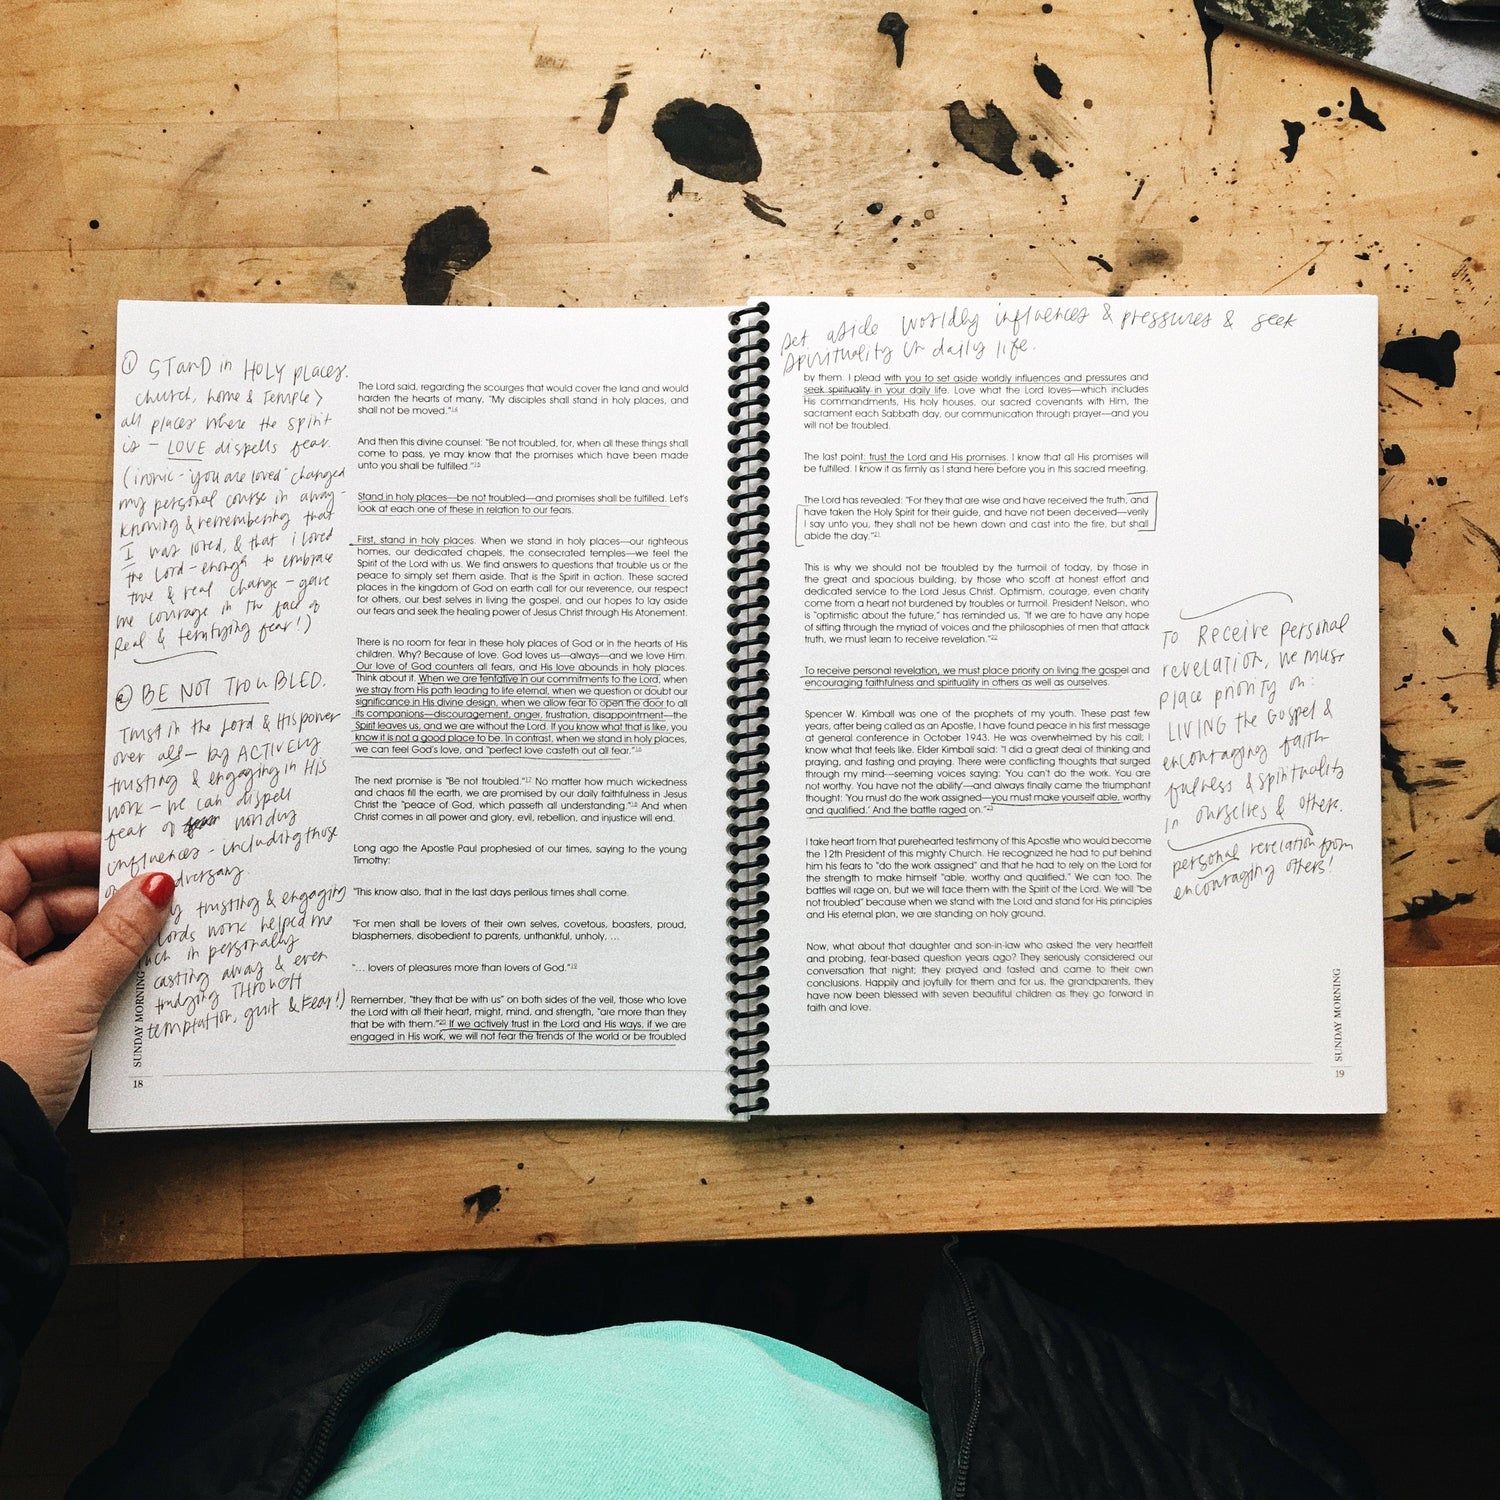 ① STAND in HOLY places.
church, home & temple >
all places where the spirit
is - LOVE dispells fear.
(ironic - "you are loved" changed
my personal course in away -
knowing & remembering that
I was loved, & that i loved
the Lord - enough to embrace
true & real change - gave
me courage in the face of
Real & terrifying fear!)
② BE NOT TROUBLED.
Trust in the Lord & His power
over all - by ACTIVELY
trusting & engaging in His
work - we can dispell
fear of worldly
influences - including those
adversary
trusting & engaging
Lords work helped me
in personally
casting away & even
trudging THROUGH
temptation, guilt & fear!)
SUNDAY MORNING
18
The Lord said, regarding the scourges that would cover the land and would
harden the hearts of many, "My disciples shall stand in holy places, and
shall not be moved."14
And then this divine counsel: "Be not troubled, for, when all these things shall
come to pass, ye may know that the promises which have been made
unto you shall be fulfilled."15
Stand in holy places—be not troubled—and promises shall be fulfilled. Let's
look at each one of these in relation to our fears.
First, stand in holy places. When we stand in holy places—our righteous
homes, our dedicated chapels, the consecrated temples—we feel the
Spirit of the Lord with us. We find answers to questions that trouble us or the
peace to simply set them aside. That is the Spirit in action. These sacred
places in the kingdom of God on earth call for our reverence, our respect
for others, our best selves in living the gospel, and our hopes to lay aside
our fears and seek the healing power of Jesus Christ through His Atonement.
There is no room for fear in these holy places of God or in the hearts of His
children. Why? Because of love. God loves us—always—and we love Him.
Our love of God counters all fears, and His love abounds in holy places.
Think about it. When we are tentative in our commitments to the Lord, when
we stray from His path leading to life eternal, when we question or doubt our
significance in His divine design, when we allow fear to open the door to all
its companions—discouragement, anger, frustration, disappointment—the
Spirit leaves us, and we are without the Lord. If you know what that is like, you
know it is not a good place to be. In contrast, when we stand in holy places,
we can feel God's love, and "perfect love casteth out all fear."16
The next promise is "Be not troubled."17 No matter how much wickedness
and chaos fill the earth, we are promised by our daily faithfulness in Jesus
Christ the "peace of God, which passeth all understanding."18 And when
Christ comes in all power and glory, evil, rebellion, and injustice will end.
Long ago the Apostle Paul prophesied of our times, saying to the young
Timothy:
"This know also, that in the last days perilous times shall come.
"For men shall be lovers of their own selves, covetous, boasters, proud,
blasphemers, disobedient to parents, unthankful, unholy, …
"… lovers of pleasures more than lovers of God."19
Remember, "they that be with us" on both sides of the veil, those who love
the Lord with all their heart, might, mind, and strength, "are more than they
that be with them."20 If we actively trust in the Lord and His ways, if we are
engaged in His work, we will not fear the trends of the world or be troubled
set aside worldly influences & pressures & seek
spirituality in daily life.
by them. I plead with you to set aside worldly influences and pressures and
seek spirituality in your daily life. Love what the Lord loves—which includes
His commandments, His holy houses, our sacred covenants with Him, the
sacrament each Sabbath day, our communication through prayer—and you
will not be troubled.
The last point: trust the Lord and His promises. I know that all His promises will
be fulfilled. I know it as firmly as I stand here before you in this sacred meeting.
The Lord has revealed: "For they that are wise and have received the truth, and
have taken the Holy Spirit for their guide, and have not been deceived—verily
I say unto you, they shall not be hewn down and cast into the fire, but shall
abide the day."21
This is why we should not be troubled by the turmoil of today, by those in
the great and spacious building, by those who scoff at honest effort and
dedicated service to the Lord Jesus Christ. Optimism, courage, even charity
come from a heart not burdened by troubles or turmoil. President Nelson, who
is "optimistic about the future," has reminded us, "If we are to have any hope
of sifting through the myriad of voices and the philosophies of men that attack
truth, we must learn to receive revelation."22
To receive personal revelation, we must place priority on living the gospel and
encouraging faithfulness and spirituality in others as well as ourselves.
Spencer W. Kimball was one of the prophets of my youth. These past few
years, after being called as an Apostle, I have found peace in his first message
at general conference in October 1943. He was overwhelmed by his call; I
know what that feels like. Elder Kimball said: "I did a great deal of thinking and
praying, and fasting and praying. There were conflicting thoughts that surged
through my mind—seeming voices saying: 'You can't do the work. You are
not worthy. You have not the ability'—and always finally came the triumphant
thought: 'You must do the work assigned—you must make yourself able, worthy
and qualified.' And the battle raged on."23
I take heart from that purehearted testimony of this Apostle who would become
the 12th President of this mighty Church. He recognized he had to put behind
him his fears to "do the work assigned" and that he had to rely on the Lord for
the strength to make himself "able, worthy and qualified." We can too. The
battles will rage on, but we will face them with the Spirit of the Lord. We will "be
not troubled" because when we stand with the Lord and stand for His principles
and His eternal plan, we are standing on holy ground.
Now, what about that daughter and son-in-law who asked the very heartfelt
and probing, fear-based question years ago? They seriously considered our
conversation that night; they prayed and fasted and came to their own
conclusions. Happily and joyfully for them and for us, the grandparents, they
have now been blessed with seven beautiful children as they go forward in
faith and love.
TO RECEIVE personal
revelation, we must
place priority on:
LIVING the Gospel &
encouraging faith-
fulness & spirituality
in ourselves & others.
personal revelation from
encouraging others!
SUNDAY MORNING
19